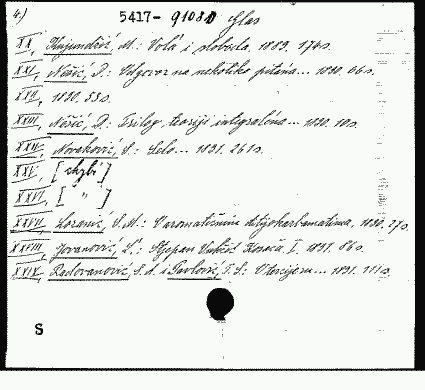 4.) 5417-91080 Glas
XX, Kujundžić, M.: Volá i sloboda. 1889. 176 s.
XXI, Nešić, D.: Odgovor na nekoliko pitána... 1890. 66 s.
XXII, 1890. 53 s.
XXIII, Nešić, D.: Prilog teoriji integraléna... 1890. 10 s.
XXIV, Novaković, S.: Selo... 1891. 261 s.
XXV, [chybí]
XXVI, [ " ]
XXVII, Lozanić, S. M.: O aromatičnim ditijokarbamatima, 1890, 27 s.
XXVIII, Jovanović, L.: Stjepan Vukčić Kosača I. 1891. 86 s.
XXIX, Radovanović, S. A. i Pavlović, P. S.: O tercijeru... 1891. 111 s.
S